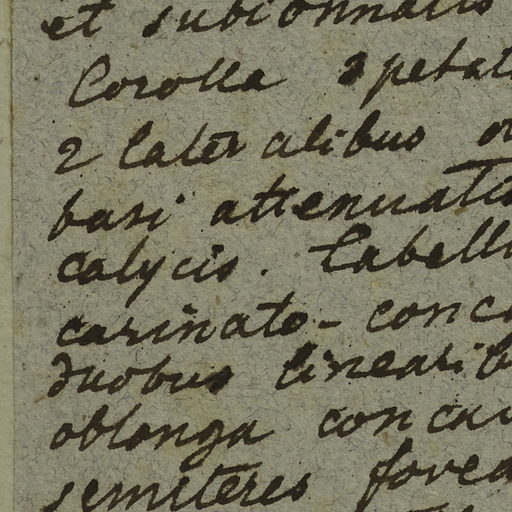 et subconnatis
Corolla 3 petal
2 lateralibus
basi attenuatis
calycis. Labell
carinato-conca
duobus linearib
oblonga concav
semiteres fovea